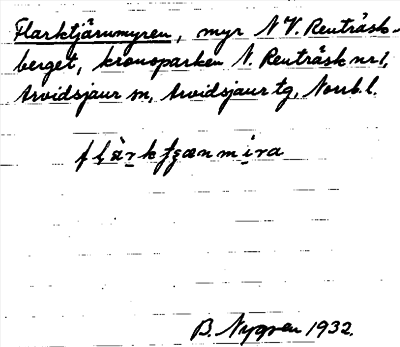 Flarktjärnmyren, myr NV. Renträsk-
berget, kronoparken N. Renträsk nr 1,
Arvidsjaur sn, Arvidsjaur tg, Norrb. l.
B. Nygren 1932.